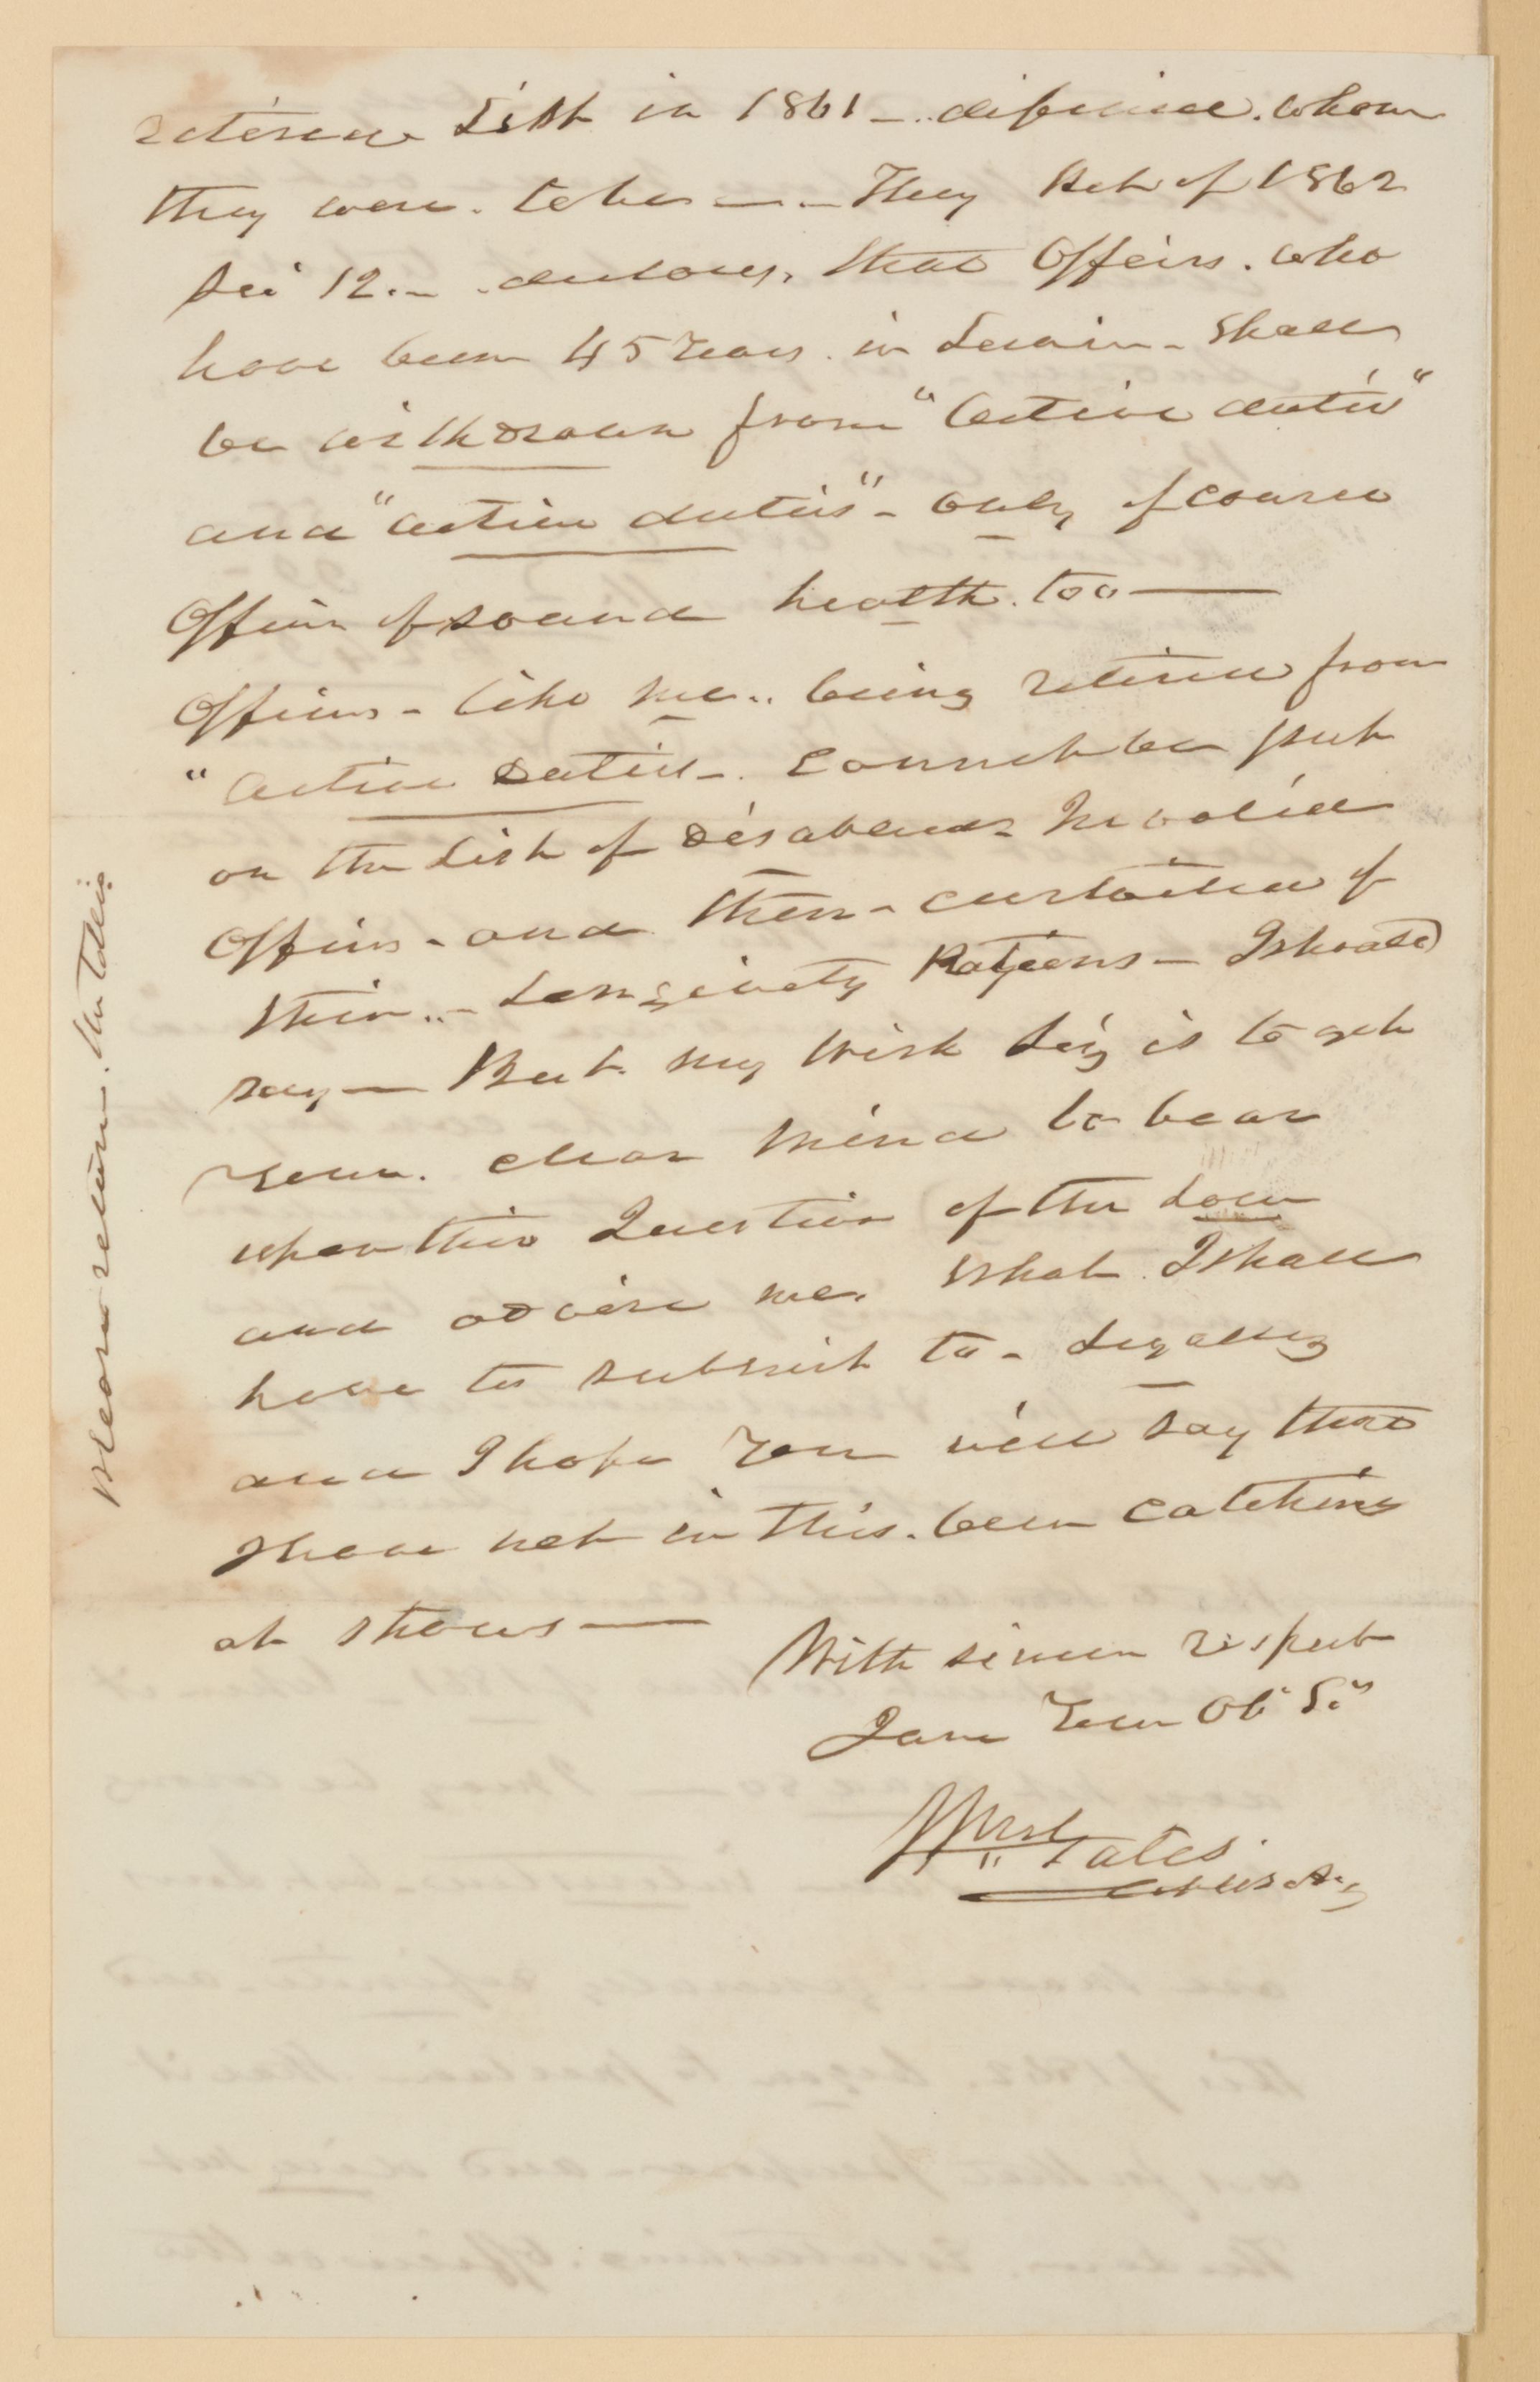 retired List in 1861 - defined. whom
they were. to be — - They Act of 1862
Sec 12. - . declares, that Officers. who
have been 45 Years. in Service - Shall
be withdrawn from "active duties"
and "active duties" - only of course
Officers of sound health. too —
Officers - like me.. being retired from
"active duties -. cannot be put
on the List of disabled Invalid
Officers - and then - curtailed of
their.. - Longevity Rations - I should
say — But. my wish Sir, is to get
Your. clear mind to bear
upon this Question of the Law
and advise me. what I shall
have to submit to - Legally
and I hope You will say that
I have not in this. been catching
at straws —
With sincere respect
I am Your Ob. St.
Cates
Please return. the